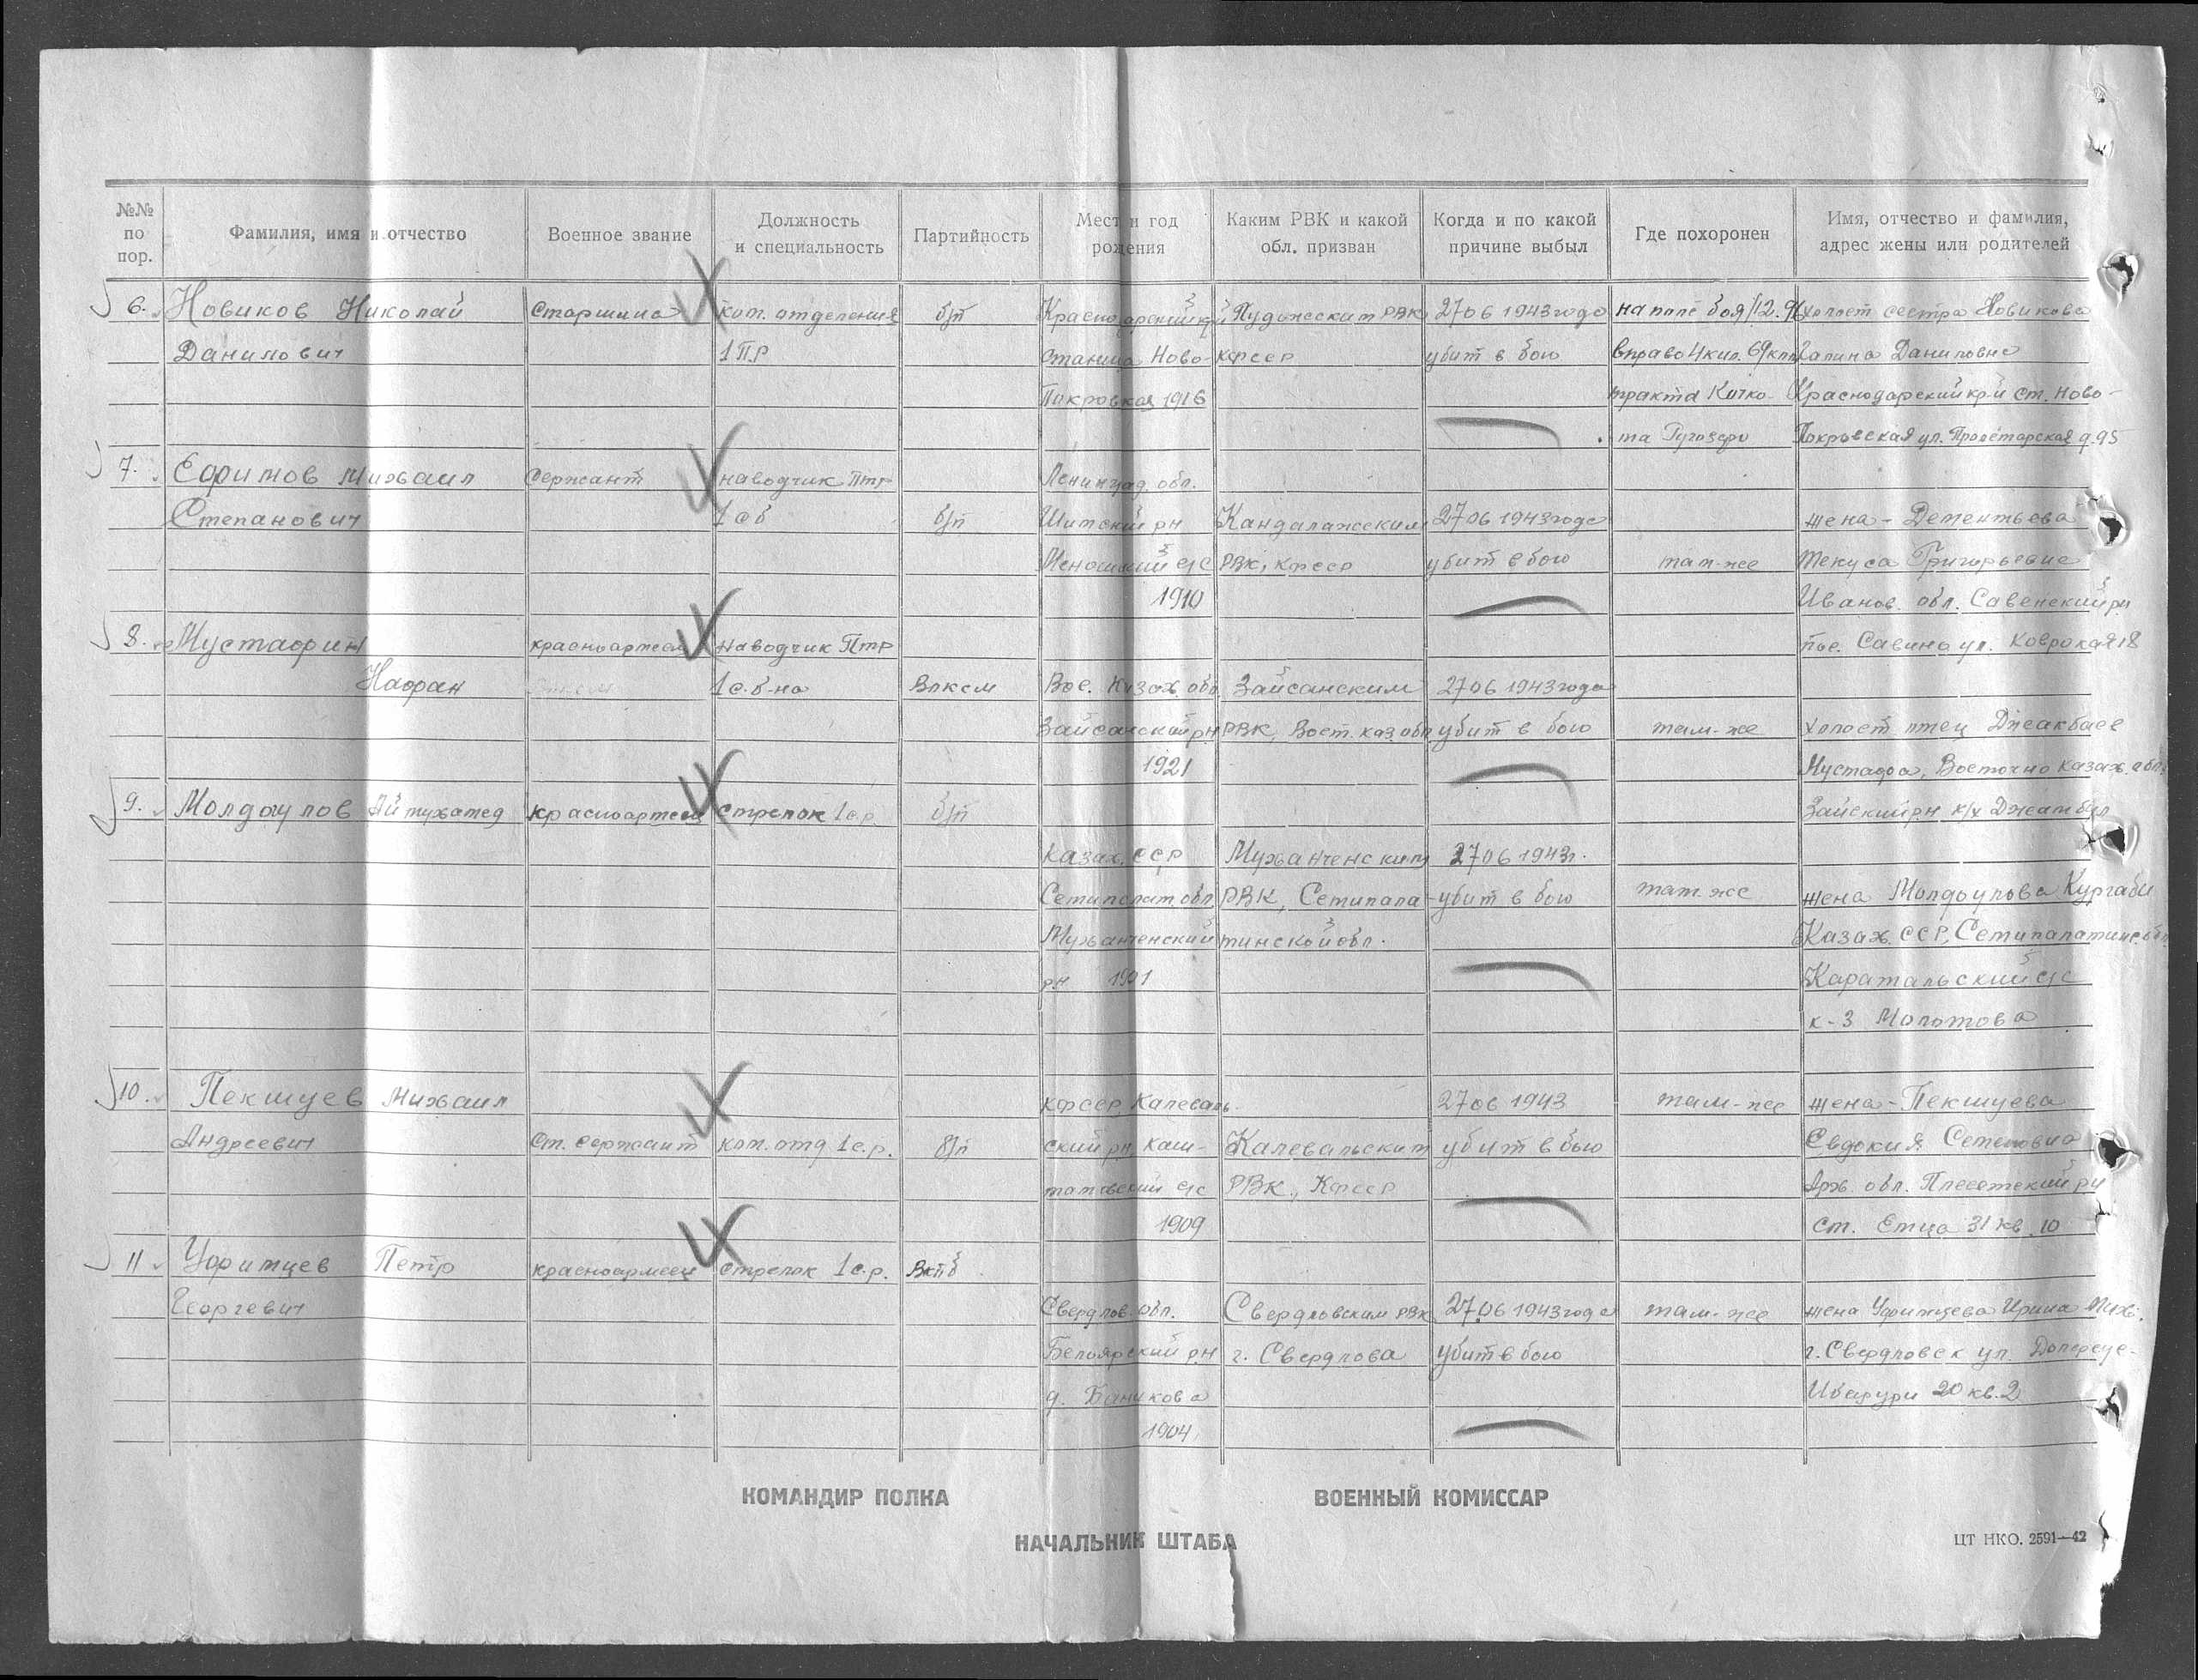 №№ по пор. Фамилия, имя и отчество Военное звание Должность и специальность Партийность Мест и год рождения Каким РВК и какой обл. призван Когда и по какой причине выбыл Где похоронен Имя, отчество и фамилия, адрес жены или родителей
6. Новиков Николай Старшина ком. отделения б/п Краснодарский кр Пудожским РВК 27 06 1943 года на поле боя холост сестра Новикова
Данилович 1 ПР станица Ново- кфсср убит в бою вправо 4 кил. 69 клм Галина Даниловна
Покровская 1916 тракта Кочко- Краснодарский кр-й ст. Ново-
та Ругозеро Покровская ул. Пролетарская д. 95
7. Ефимов Михаил Сержант наводчик Птр Ленинград. обл.
Степанович 1 сб б/п рн Кандалакжским 27 06 1943 года жена - Дементьева
с/с РВК, кфсср убит в бою там-же Григорьевна
1910 Иванов. обл. Савенский рн
8. Мустафин красноармеец наводчик Птр пос. Савино ул.
Нафан 1 с.б-на Влксм Вос. Казах обл Зайсанским 27 06 1943 года
Зайсанский рн РВК, Вост. каз. обл убит в бою там-же холост отец Джакбаев
1921 Мустафа, Восточно Казах. обл
9. Молдоулов Айтухамед красноармеец стрелок 1 с.р. б/п рн к/х Джамбул
Казах. ССР 27 06 1943г.
Семипалат обл РВК, Семипала- убит в бою там же жена Молдоулова
тинской обл. Казах ССР, Семипалатинс. обл
рн 1901 Каратальский с/с
к-з Молотова
10. Пекшуев Михаил кфсср Калеваль- 27 06 1943 там-же жена - Пекшуева
Андреевич ст. сержант ком. отд 1 с.р. б/п ский рн. Калевальским убит в бою Евдокия Семеновна
с/с РВК., Кфсср Арх. обл. Плесетский рн
1909 ст. Емца 31 кв. 10
11 Уфимцев Петр красноармеец стрелок 1 с.р. Вкпб
Георгевич Свердлов. обл. Свердловским РВК 27.06 1943 года там-же жена Уфимцева Ирина Мих.
Белоярский рн г. Свердлова убит в бою г. Свердловск ул.
д. 20 кв. 2
1904
КОМАНДИР ПОЛКА ВОЕННЫЙ КОМИССАР
НАЧАЛЬНИК ШТАБА ЦТ НКО. 2591—42